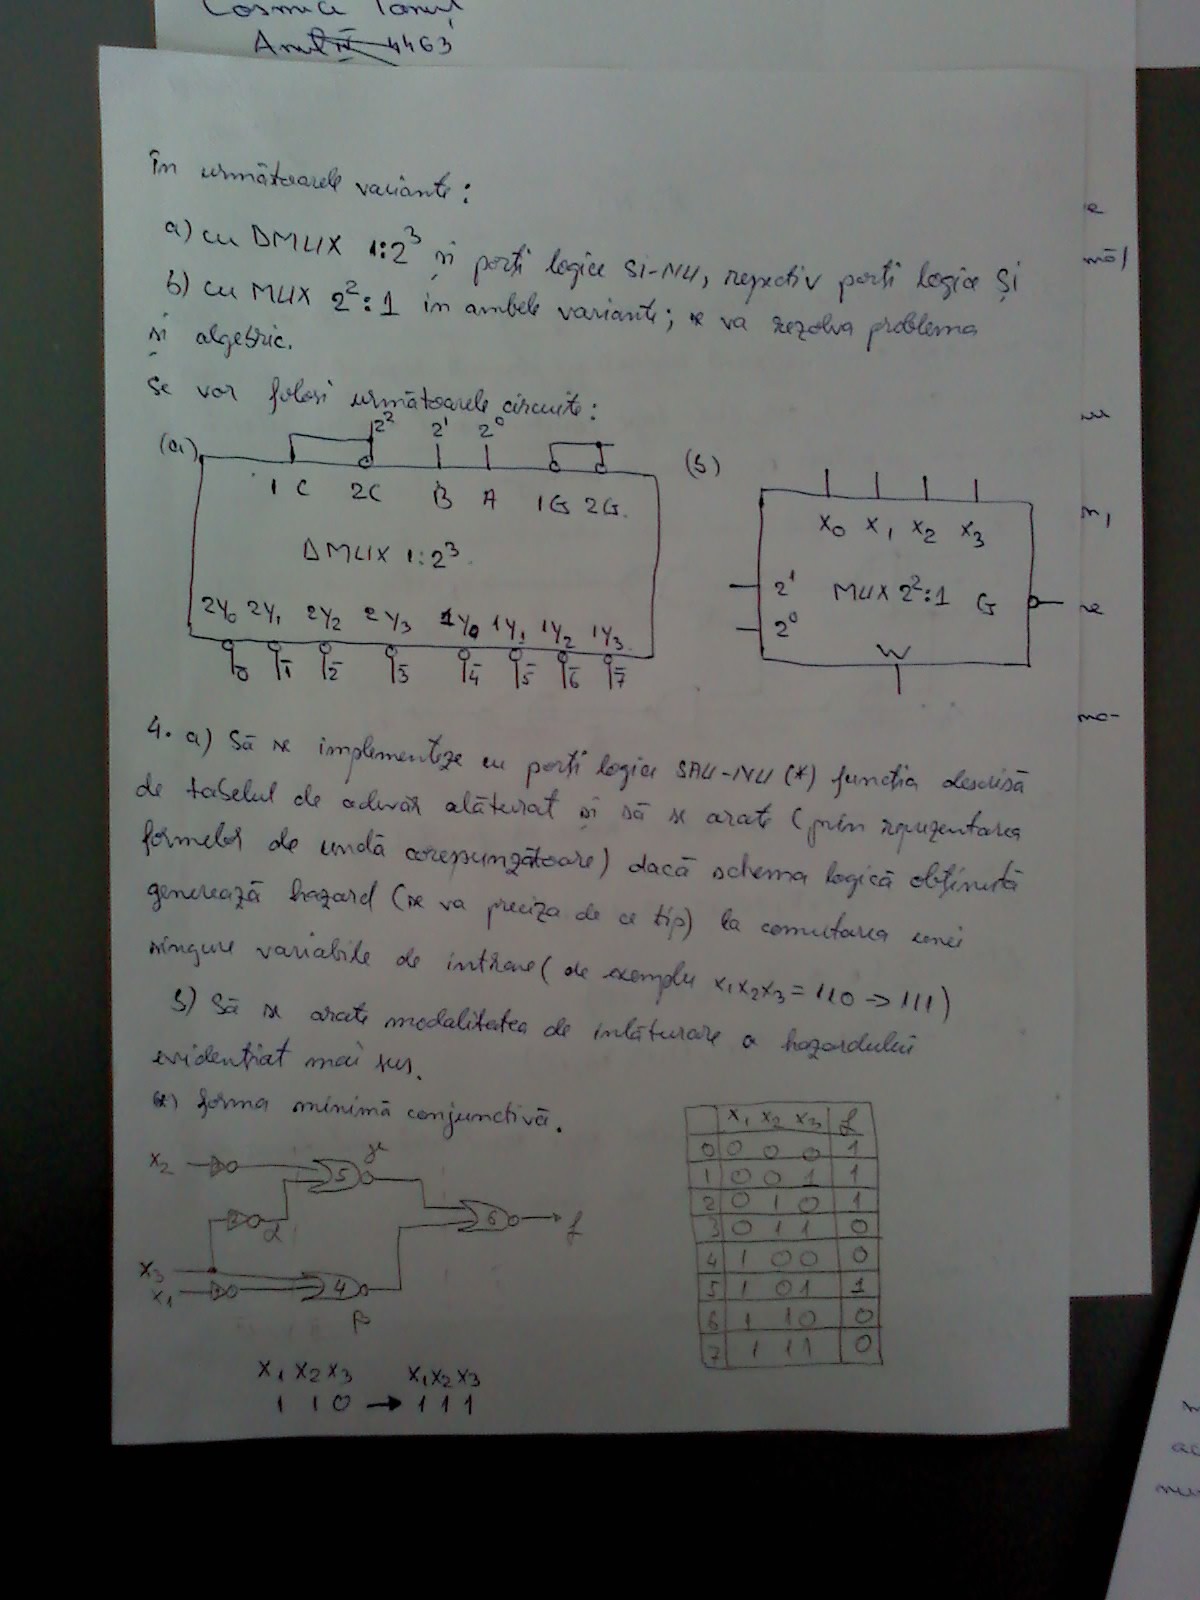 Cosmin Ionuț
Anul IV 4463
În următoarele variante:
a) cu DMUX 1:2³ și porți logice SI-NU, respectiv porți logice ȘI
b) cu MUX 2²:1 în ambele variante; se va rezolva problema
și algebric.
Se vor folosi următoarele circuite:
(a)
2² 2¹ 2⁰
1C 2C B A 1G 2G
DMUX 1:2³
2Y₀ 2Y₁ 2Y₂ 2Y₃ 1Y₀ 1Y₁ 1Y₂ 1Y₃
0̄ 1̄ 2̄ 3̄ 4̄ 5̄ 6̄ 7̄
(b)
X₀ X₁ X₂ X₃
2¹ MUX 2²:1 G
2⁰
W
4. a) Să se implementeze cu porți logice SAU-NU (*) funcția descrisă
de tabelul de adevăr alăturat și să se arate (prin reprezentarea
formelor de undă corespunzătoare) dacă schema logică obținută
generează hazard (se va preciza de ce tip) la comutarea unei
singure variabile de intrare (de exemplu x₁x₂x₃ = 110 → 111)
b) Să se arate modalitatea de înlăturare a hazardului
evidențiat mai sus.
(*) forma minimă conjunctivă.
X₂ 5 γ
2 α 6 f
X₃
X₁ 4
β
X₁ X₂ X₃ X₁X₂X₃
1 1 0 → 1 1 1
X₁ X₂ X₃ f
0 0 0 0 1
1 0 0 1 1
2 0 1 0 1
3 0 1 1 0
4 1 0 0 0
5 1 0 1 1
6 1 1 0 0
7 1 1 1 0